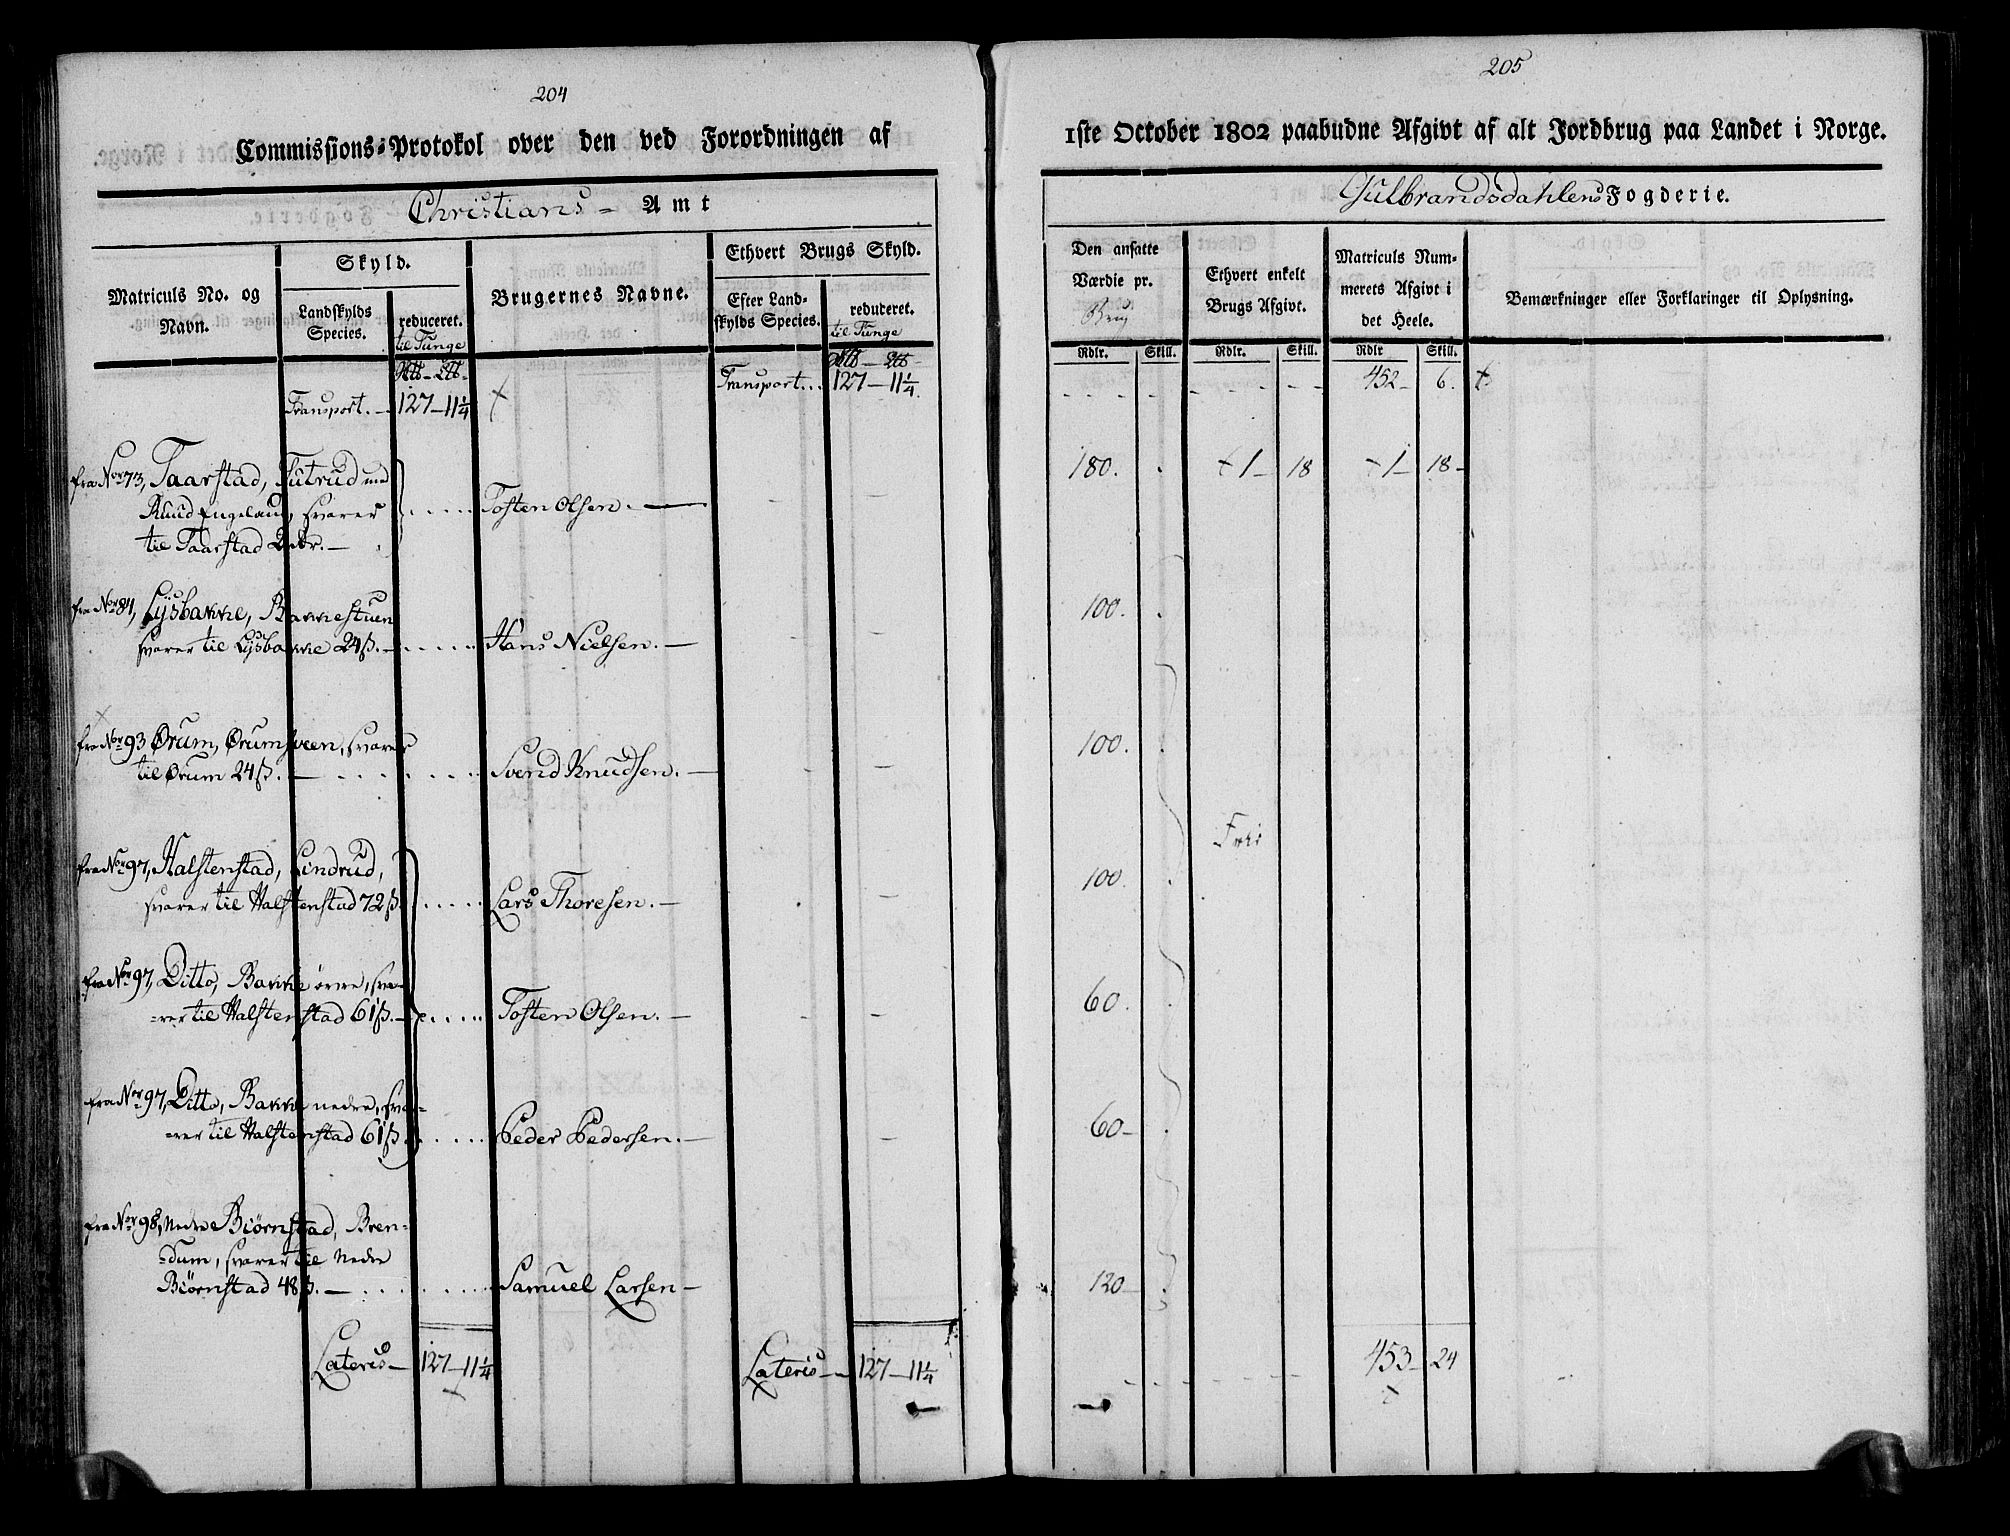 204
Commissions-Protokol over den ved Forordningen af
Christians- Amt
Matriculs No. og Navn.
Skyld.
Landskylds Species.
reduceret.
til Tunge
Brugernes Navne.
Ethvert Brugs Skyld.
Efter Landskylds Species.
reduceret.
til Tunge
Transport. — 127 — 11 1/4
Transport... 127 — 11 1/4
fra Nor 73, Taarstad, Tutrud med
Ruud Engeland, svarer
til Taarstad 2 rdr. — Tosten Olsen. —
fra Nor 84, Lysbakke, Bakkestuen
svarer til Lysbakke 24 ß. — Hans Nielsen. —
fra Nor 93 Ørum, Ørumsveen, svarer
til Ørum 24 ß. — Svend Knudsen. —
fra Nor 97, Halstenstad, Lindrud,
svarer til Halstenstad 72 ß. Lars Thoresen. —
fra Nor 97, Ditto, Bakke øvre, sva-
-rer til Halstenstad 61 ß. — Tosten Olsen. —
fra Nor 97, Ditto, Bakke nedre, sva-
-rer til Halstenstad 61 ß. Peder Pedersen. —
fra Nor 98, Nedre Biørnstad, Bren-
-dum, svarer til Nedre
Biørnstad 48 ß. — Samuel Larsen —
Lateris — 127 — 11 1/4
Lateris — 127 — 11 1/4
205
1ste October 1802 paabudne Afgivt af alt Jordbrug paa Landet i Norge.
Gulbrandsdahlens Fogderie.
Den ansatte Værdie pr.
Brug
Ethvert enkelt Brugs Afgivt.
Matriculs Nummerets Afgivt i det Heele.
Bemærkninger eller Forklaringer til Oplysning.
Rdlr. Skill. Rdlr. Skill. Rdlr Skill.
452 — 6.
180. 1 — 18 1 — 18 —
100.
100.
Frie
100.
60.
60 —
120 —
453 — 24